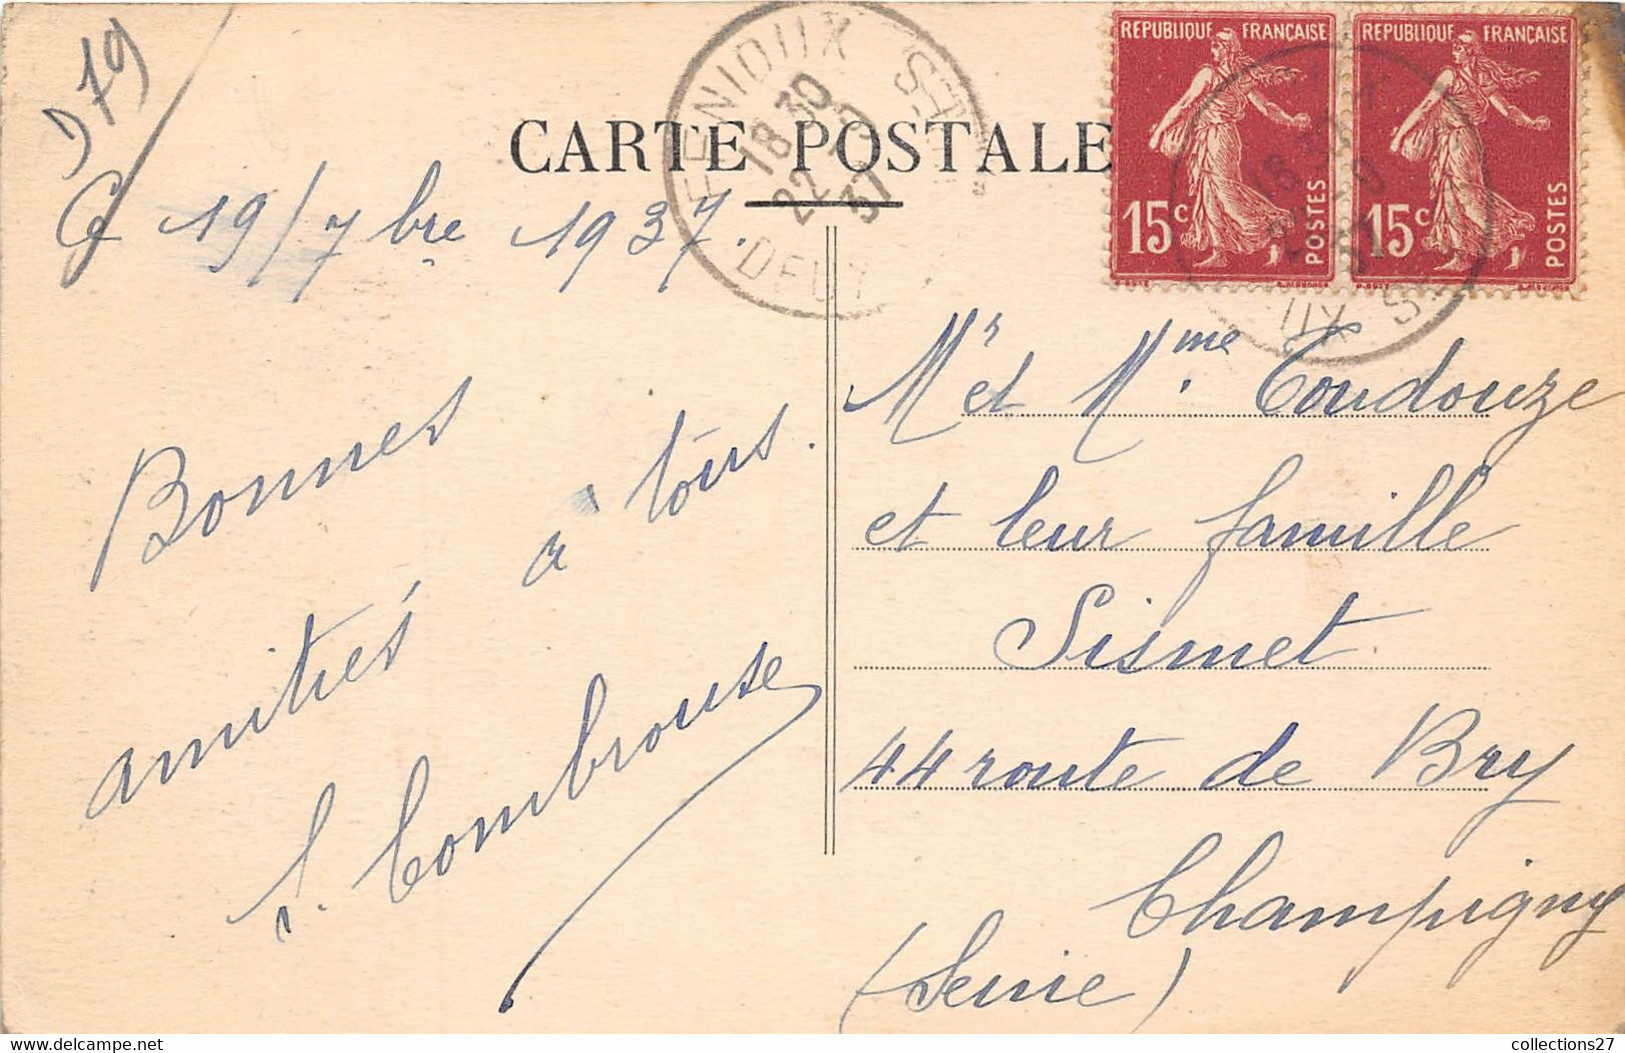 D79
CARTE POSTALE
Ce 19/7bre 1937.
Bonnes
amitiés à tous.
S. Combrouse
FENIOUX
18 30
22 -9
37
REPUBLIQUE FRANÇAISE
15c
POSTES
REPUBLIQUE FRANÇAISE
15c
POSTES
Mr et Mme Toudouze
et leur famille
Sismet.
44 route de Bry
Champigny
(Seine)
collections27